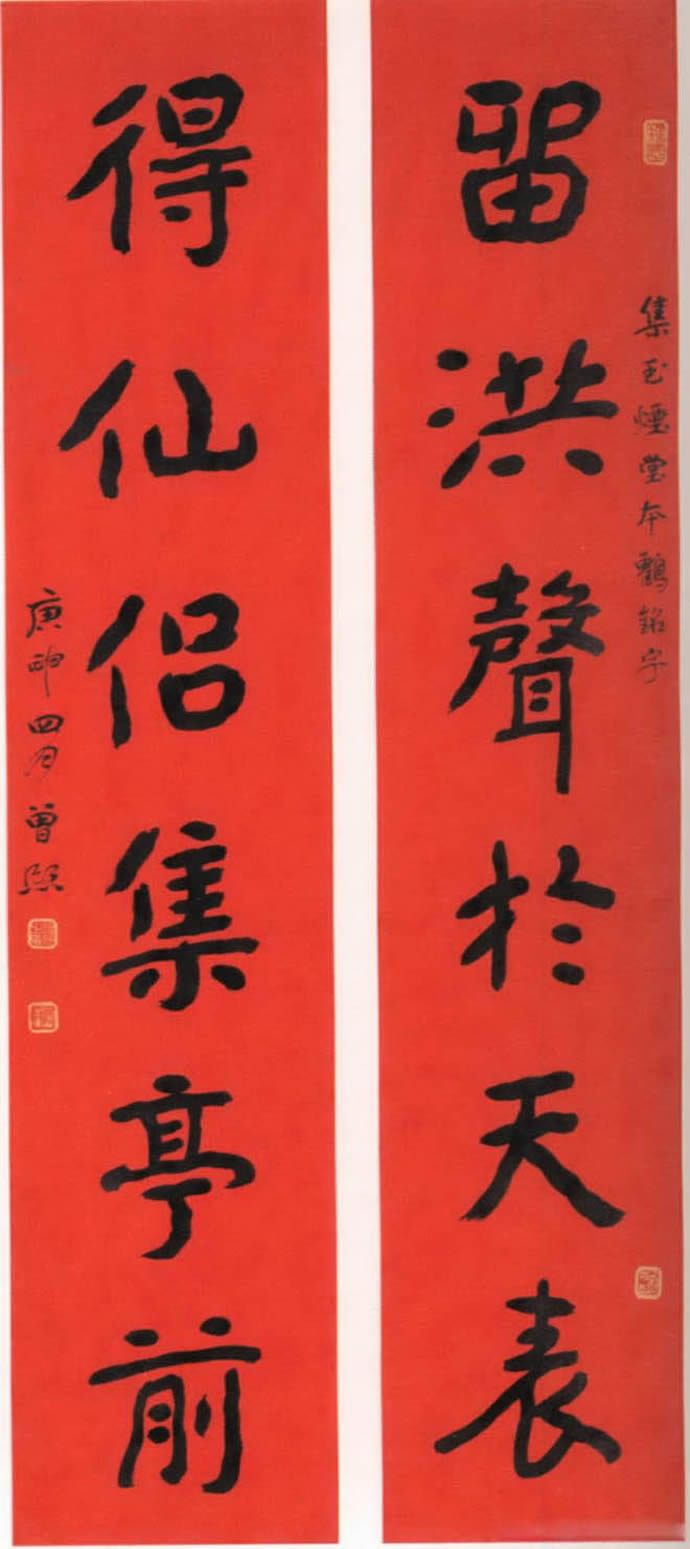 留洪聲於天表
集玉煙堂本鶴銘字
得仙侶集亭前
庚申四月曾熙